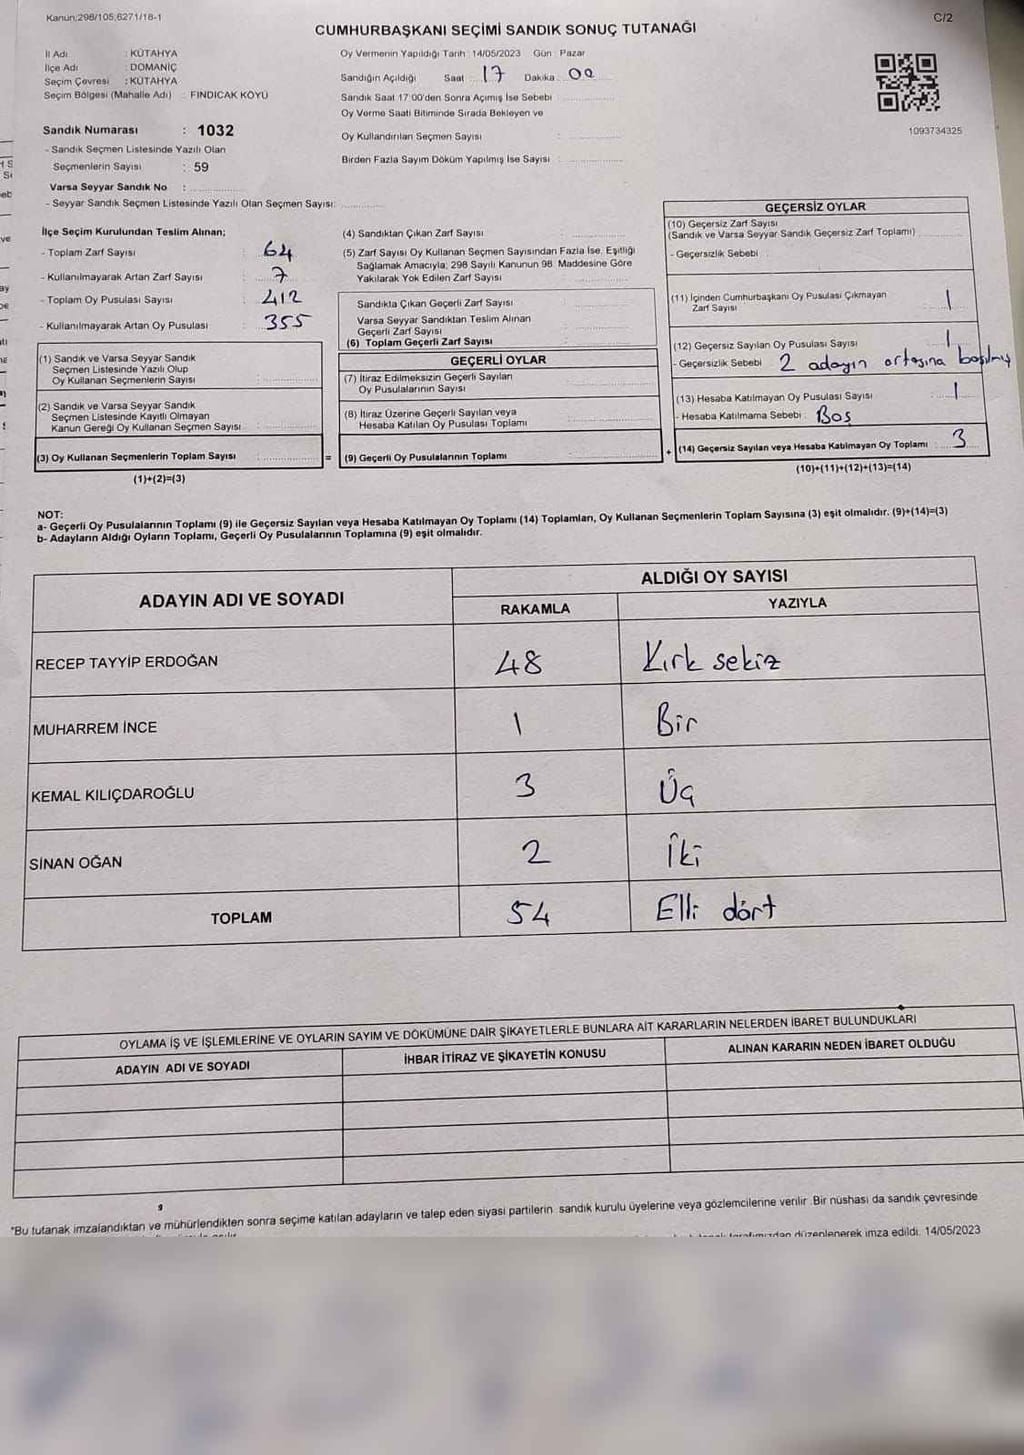 Kanun;298/105,6271/18-1
C/2
CUMHURBAŞKANI SEÇİMİ SANDIK SONUÇ TUTANAĞI
İl Adı : KÜTAHYA
İlçe Adı : DOMANİÇ
Seçim Çevresi : KÜTAHYA
Seçim Bölgesi (Mahalle Adı) : FINDICAK KÖYÜ
Oy Vermenin Yapıldığı Tarih : 14/05/2023 Gün : Pazar
Sandığın Açıldığı Saat : 17 Dakika : 00
Sandık Saat 17:00'den Sonra Açımış İse Sebebi :
Oy Verme Saati Bitiminde Sırada Bekleyen ve
Oy Kullandırılan Seçmen Sayısı :
Birden Fazla Sayım Döküm Yapılmış İse Sayısı :
1093734325
Sandık Numarası : 1032
- Sandık Seçmen Listesinde Yazılı Olan
Seçmenlerin Sayısı : 59
Varsa Seyyar Sandık No :
- Seyyar Sandık Seçmen Listesinde Yazılı Olan Seçmen Sayısı:
İlçe Seçim Kurulundan Teslim Alınan;
- Toplam Zarf Sayısı : 64
- Kullanılmayarak Artan Zarf Sayısı : 7
- Toplam Oy Pusulası Sayısı : 412
- Kullanılmayarak Artan Oy Pusulası : 355
(1) Sandık ve Varsa Seyyar Sandık
Seçmen Listesinde Yazılı Olup
Oy Kullanan Seçmenlerin Sayısı :
(2) Sandık ve Varsa Seyyar Sandık
Seçmen Listesinde Kayıtlı Olmayan
Kanun Gereği Oy Kullanan Seçmen Sayısı :
(3) Oy Kullanan Seçmenlerin Toplam Sayısı :
(1)+(2)=(3)
(4) Sandıktan Çıkan Zarf Sayısı :
(5) Zarf Sayısı Oy Kullanan Seçmen Sayısından Fazla İse, Eşitliği
Sağlamak Amacıyla; 298 Sayılı Kanunun 98. Maddesine Göre
Yakılarak Yok Edilen Zarf Sayısı :
Sandıkta Çıkan Geçerli Zarf Sayısı :
Varsa Seyyar Sandıktan Teslim Alınan
Geçerli Zarf Sayısı :
(6) Toplam Geçerli Zarf Sayısı :
=
GEÇERLİ OYLAR
(7) İtiraz Edilmeksizin Geçerli Sayılan
Oy Pusulalarının Sayısı :
(8) İtiraz Üzerine Geçerli Sayılan veya
Hesaba Katılan Oy Pusulası Toplamı :
(9) Geçerli Oy Pusulalarının Toplamı :
+
GEÇERSİZ OYLAR
(10) Geçersiz Zarf Sayısı
(Sandık ve Varsa Seyyar Sandık Geçersiz Zarf Toplamı)
- Geçersizlik Sebebi :
(11) İçinden Cumhurbaşkanı Oy Pusulası Çıkmayan
Zarf Sayısı : 1
(12) Geçersiz Sayılan Oy Pusulası Sayısı : 1
- Geçersizlik Sebebi : 2 adayın ortasına basılmış
(13) Hesaba Katılmayan Oy Pusulası Sayısı : 1
- Hesaba Katılmama Sebebi : Boş
(14) Geçersiz Sayılan veya Hesaba Katılmayan Oy Toplamı : 3
(10)+(11)+(12)+(13)=(14)
NOT:
a- Geçerli Oy Pusulalarının Toplamı (9) ile Geçersiz Sayılan veya Hesaba Katılmayan Oy Toplamı (14) Toplamları, Oy Kullanan Seçmenlerin Toplam Sayısına (3) eşit olmalıdır. (9)+(14)=(3)
b- Adayların Aldığı Oyların Toplamı, Geçerli Oy Pusulalarının Toplamına (9) eşit olmalıdır.
ADAYIN ADI VE SOYADI
ALDIĞI OY SAYISI
RAKAMLA YAZIYLA
RECEP TAYYİP ERDOĞAN 48 Kırk sekiz
MUHARREM İNCE 1 Bir
KEMAL KILIÇDAROĞLU 3 Üç
SİNAN OĞAN 2 İki
TOPLAM 54 Elli dört
OYLAMA İŞ VE İŞLEMLERİNE VE OYLARIN SAYIM VE DÖKÜMÜNE DAİR ŞİKAYETLERLE BUNLARA AİT KARARLARIN NELERDEN İBARET BULUNDUKLARI
ADAYIN ADI VE SOYADI İHBAR İTİRAZ VE ŞİKAYETİN KONUSU ALINAN KARARIN NEDEN İBARET OLDUĞU
9
*Bu tutanak imzalandıktan ve mühürlendikten sonra seçime katılan adayların ve talep eden siyasi partilerin sandık kurulu üyelerine veya gözlemcilerine verilir. Bir nüshası da sandık çevresinde
tarafımızdan düzenlenerek imza edildi. 14/05/2023